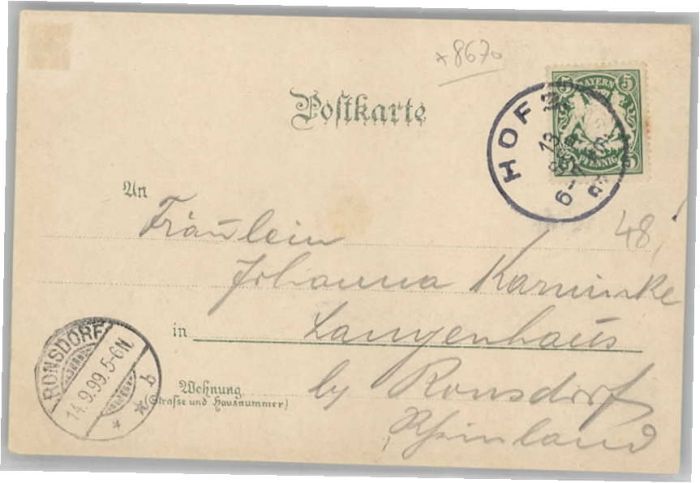 *8670
Postkarte
BAYERN
5 5
PFENNIG
HOF 2
13
SEP
6-7
99
An
Fräulein
48,
Johanna
in Langenhaus
Wohnung
(Strasse und Hausnummer)
by Ronsdorf
Rheinland
RONSDORF
14.9.99.5-6N.
* *